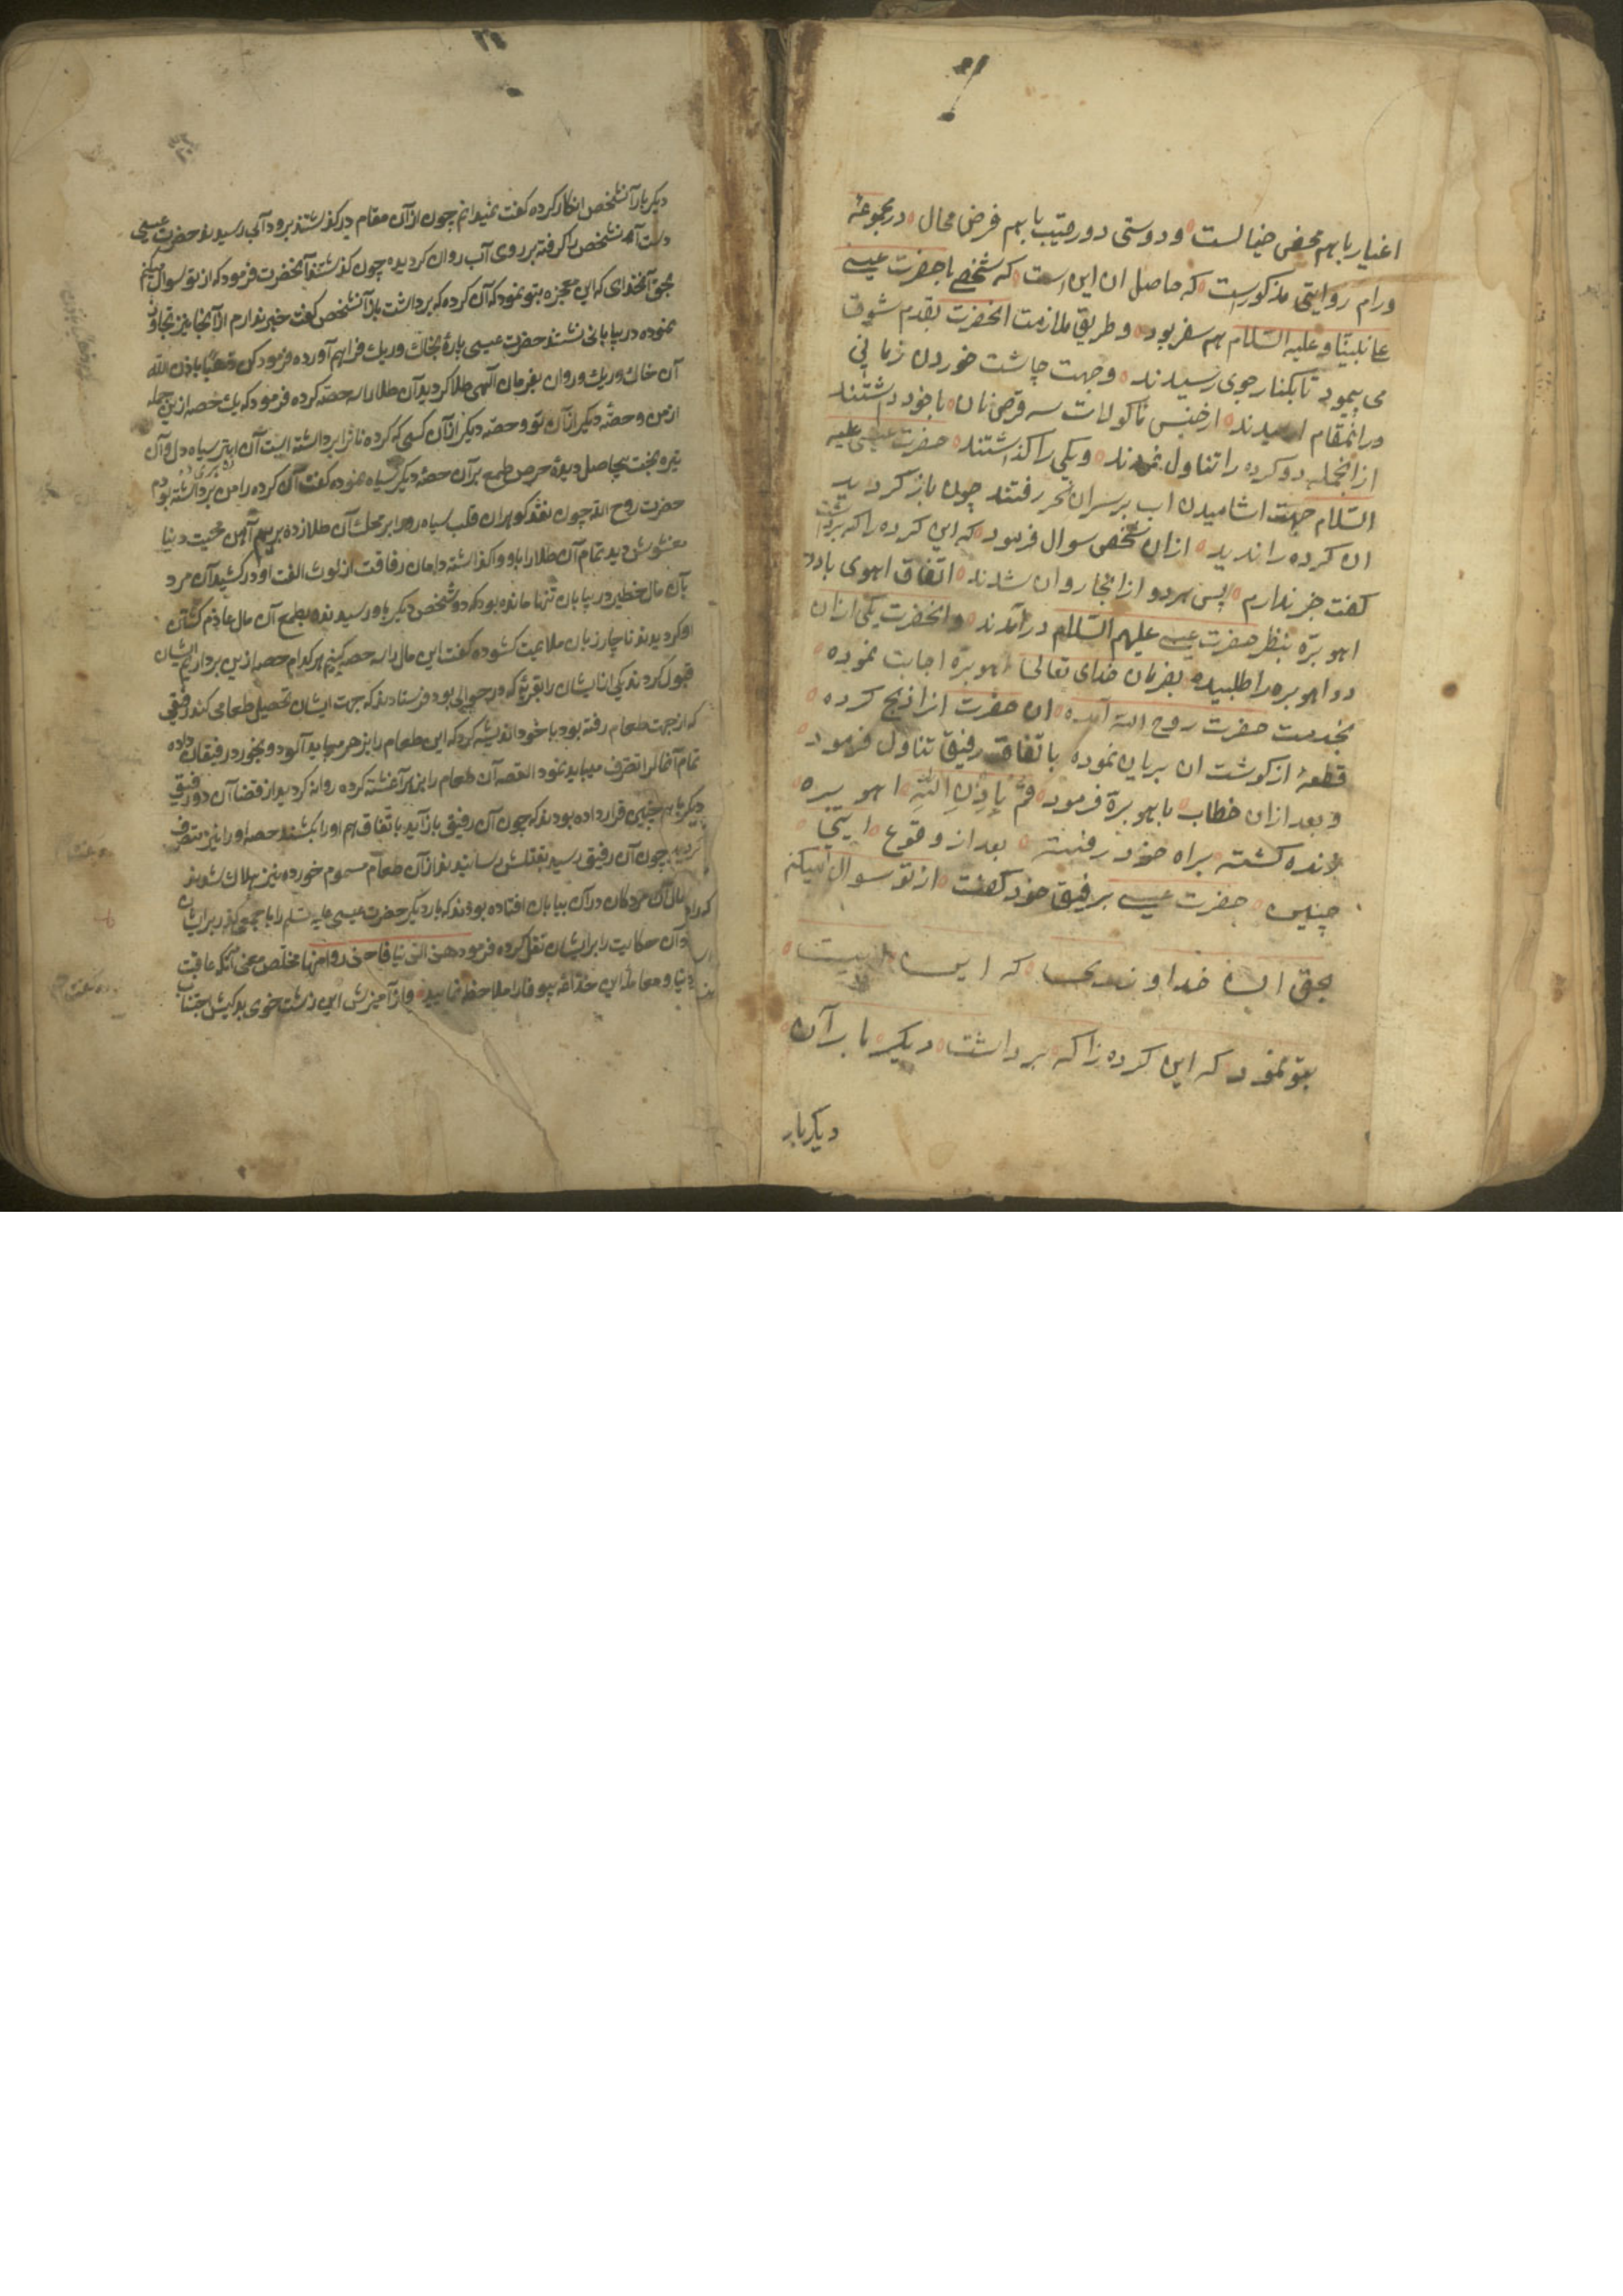 اغیار باهم محض خیالست و دوستی دو رقیب باهم فرض محال در مجموعهٔ
ورام روایتی مذکورست که حاصل ان این است که شخصی با حضرت عیسی
علی نبینا و علیه السلام هم سفر بود و طریق ملازمت انحضرت بقدم شوق
می پیمود تا بکنار جوی رسیدند و جهت چاشت خوردن زمانی
درانمقام ارمیدند از جنس ماکولات سه قرص نان با خود داشتند
ازانجمله دو کرده را تناول نمودند و یکی را کذاشتند حضرت عیسی علیه
السلام جهت اشامیدن اب بر سران نحر رفتند چون باز کردید
ان کرده را ندید ازان شخص سوال فرمود که این کرده را که برداشت
کفت خبر ندارم پس هردو ازانجا روان شدند اتفاق اهوی بادو
اهوبرّه بنظر حضرت عیسی علیهم السّلام درآمدند و انحضرت یکی ازان
دو اهوبره را طلبیده بفرمان خدای تعالی اهوبرّه اجابت نموده
بخدمت حضرت روح الله آمده ان حضرت انرا ذبح کرده
قطعهٔ از کوشت ان بریان نموده باتفاق رفیق تناول فرمود
و بعد ازان خطاب باهوبرّه فرمود قُمْ بِاِذْنِ اللّٰهِ اهو بره
زنده کشته براه خود رفت بعد از وقوع
چنین حضرت عیسی برفیق خود کفت از تو سوال میکنم
بحق ان خداوندی که این
بتو نمود که این کرده را که برداشت دیکر بار آن
دیکر بار
۲۴
دیکر بار آنشخص انکار کرده کفت نمیدانم چون ازآن مقام درکذشتند برود آبی رسیدند حضرت عیسی
دست آنشخص را کرفته بر روی آب روان کردیده چون کذشتند آنحضرت فرمود که از تو سوال میکنم
بحق آنخدای که این معجزه بتو نمود که آن کرده که برداشت باز آنشخص کفت خبر ندارم الا آنجا نیز تجاوز
نموده در بیابانی نشستند حضرت عیسی پارهٔ خاک و ریک فراهم آورده فرمود کن ذهبًا باذن الله
آن خاک و ریک روان بفرمان آلهی طلا کردید آن طلا را سه حصّه کرده فرمود که یک حصه ازین جمله
از من و حصّهٔ دیکر ازآن تو و حصّه دیکر ازآن کسی که کرده نانرا برداشته است آن ابتر سیاه دل وآن
تیره بخت بیحاصل دیوهٔ حرص طمع برآن حصّهٔ دیکر سیاه نموده کفت آن کرده را من برداشته بودم
حضرت روح الله چون نقد کوهران قلب سیاه رو را بر محک آن طلا زده محبت دنیا
مغشوش دید تمام آن طلا را باو واکذاشته دامان رفاقت از لوث الفت او درکشید آن مرد
بآن مال خطیر در بیابان تنها مانده بود که دو شخص دیکر باو رسیدند بطمع آن مال عازم کشتن
او کردیدند ناچار زبان ملایمت کشوده کفت این مال را سه حصه کنیم هرکدام حصه ازین برداریم ایشان
قبول کردند یکی از ایشان را بقریهٔ که در حوالی بود فرستادند که جهت ایشان تحصیل طعامی کند رفیقی
که از جهت طعام رفته بود با خود اندیشه کرد که این طعام را بزهر میباید آلود و بخورد رفیقان داده
تمام آنمال را تصرف میباید نمود القصه آن طعام را بزهر آغشته کرده روانه کردید از قضا آن دو رفیق
دیکر هم چنین قرار داده بودند که چون آن رفیق باز آید باتفاق هم او را بکشند حصه او را نیز متصرف
کردند چون آن رفیق رسید بقتلش رسانیدند ازآن طعام مسموم خورده نیز هلاک شوند
مال آن مردکان درآن بیابان افتاده بودند که بار دیکر حضرت عیسی علیه سلم را با جمعی کذر بر ایشان
آن حکایت را برایشان نقل کرده فرمود هذه الدنیا فاحذروا منها مخلص معنی آنکه عاقبت
دنیا و معامله این غدّاره بیوفا را ملاحظه نمایید و از آمیزش این زشت خوی بدکیش اجتناب